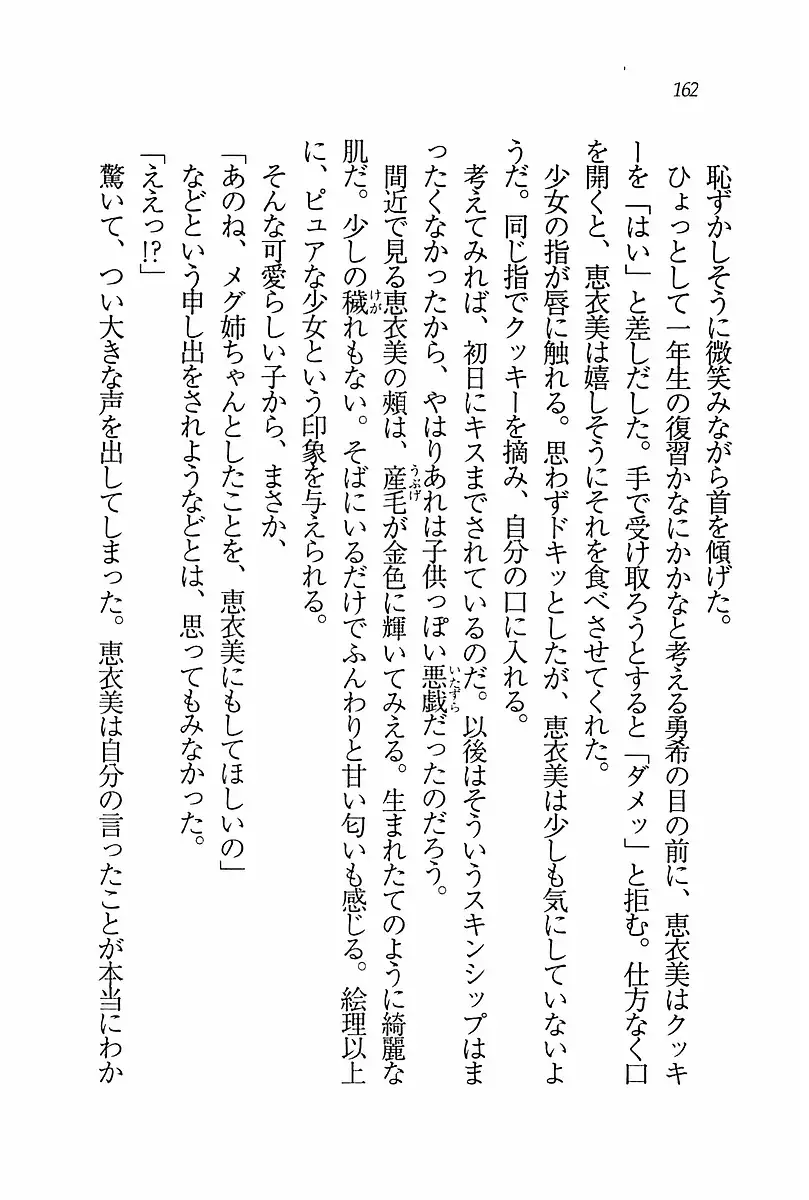 162
恥ずかしそうに微笑みながら首を傾げた。
ひょっとして一年生の復習かなにかかなと考える勇希の目の前に、恵衣美はクッキ
ーを「はい」と差しだした。手で受け取ろうとすると「ダメッ」と拒む。仕方なく口
を開くと、恵衣美は嬉しそうにそれを食べさせてくれた。
少女の指が唇に触れる。思わずドキッとしたが、恵衣美は少しも気にしていないよ
うだ。同じ指でクッキーを摘み、自分の口に入れる。
考えてみれば、初日にキスまでされているのだ。以後はそういうスキンシップはま
ったくなかったから、やはりあれは子供っぽい悪戯だったのだろう。
間近で見る恵衣美の頰は、産毛が金色に輝いてみえる。生まれたてのように綺麗な
肌だ。少しの穢れもない。そばにいるだけでふんわりと甘い匂いも感じる。絵理以上
に、ピュアな少女という印象を与えられる。
そんな可愛らしい子から、まさか、
「あのね、メグ姉ちゃんとしたことを、恵衣美にもしてほしいの」
などという申し出をされようなどとは、思ってもみなかった。
「ええっ!?」
驚いて、つい大きな声を出してしまった。恵衣美は自分の言ったことが本当にわか